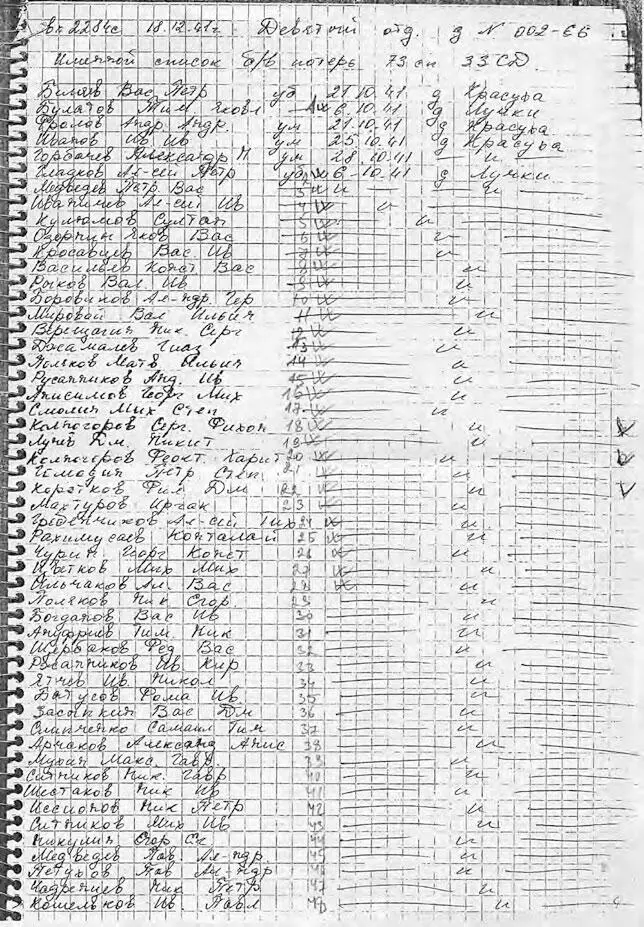 вх 2284с 18.12.41г Девятый отд. д N 002-66
Именной список б/в потерь 73 сп 33 СД.
Беляев Вас Петр уб 21.10.41 д Красуха
Булатов Тим Яковл 6.10.41 д Лучки
Фролов Андр Андр. ум 21.10.41 д Красуха
Иванов Ив Ив ум 25.10.41 д Красуха
Горбачев Александр Н ум 28.10.41 и
Гладков Ал-сей Петр уб 6-10.41 д Лучки
Медведев Петр Вас 3 и и
Иваничев Ал-сей Ив 4 и
Кулюмов Султан 5 и
Озорнин Яков Вас 6 и
Кросавцев Вас Ив 7 и
Васильев Конст Вас 8 и
Рыков Вал Ив 9 и
Боровиков Ал-ндр Гер 10 и
Мировой Вал Ильич 11 и
Верещагин Ник. Серг 12 и
Джамалев Гиаз 13 и
Поляков Матв Ильич 14 и
Русанников Анд. Ив 15 и
Анисимов Георг Мих 16 и
Смолин Мих Степ 17 и
Колногоров Серг. Фихон 18 и
Лунев Дм. Никит 19 и
Колногоров Феокт. Харит 20 и
Петр Степ 21 и
Коротков Фил Дм 22 и
Махтуров Иргак 23 и
Гребенчиков Ал-сей Тих 24 и
Рахимусаев Конталай 25 и
Чурин Георг Конст 26 и
Мих Мих 27 и
Ильчаков Ал Вас 28 и
Поляков Ник Егор 29 и
Богданов Вас Ив 30 и
Ануфриев Тим Ник 31 и
Щербаков Фед Вас 32 и
Ив Кир 33 и
Ятчев Ив. Никол 34 и
Батусов Фома Ив 35 и
Засыпкин Вас Дм 36 и
Слипченко Самаил Тим 37 и
Арчаков Александ Анис 38 и
Мухин Макс. Гавр 39 и
Ситников Ник. Гавр 40 и
Шестаков Ник Ив 41 и
Иссиопов Ник Петр 42 и
Ситников Мих Ив 43 и
Никулин Егор Ст 44 и
Медведев Пав. Ал-ндр. 45 и
Петухов Пав Ал-ндр 46 и
Ник Петр 47 и
Кошельков Ив. Павл 48 и